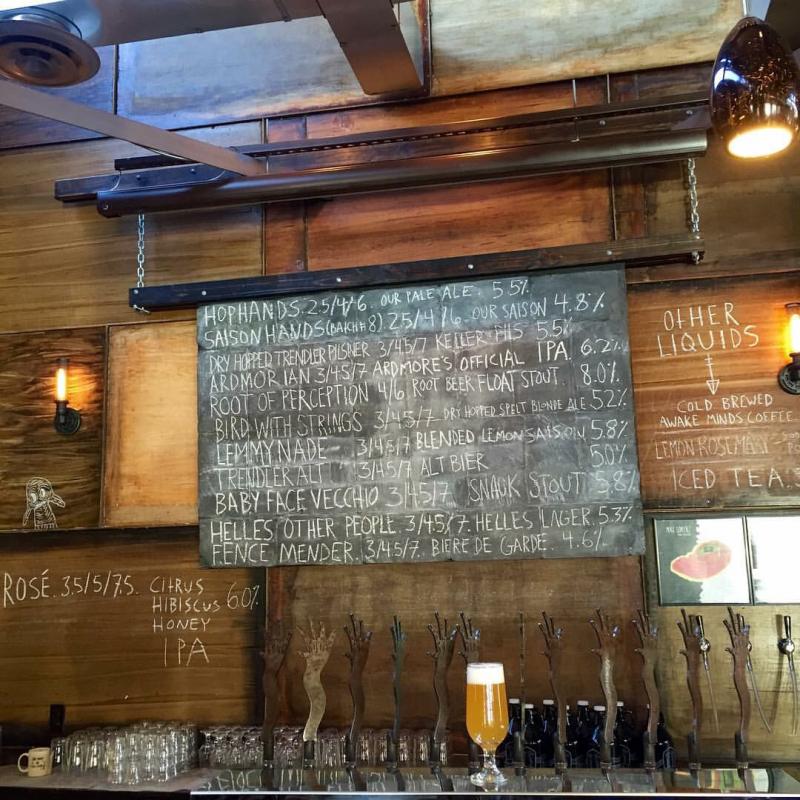 HOPHANDS. 2.5/4/6. OUR PALE ALE. 5.5%
SAISONHANDS (BATCH #8) 2.5/4/6. OUR SAISON 4.8%
DRY HOPPED TRENDLER PILSNER 3/4.5/7 KELLER PILS 5.5%
ARDMOR IAN 3/4.5/7 ARDMORE'S OFFICIAL IPA. 6.2%
ROOT OF PERCEPTION 4/6 ROOT BEER FLOAT STOUT. 8.0%
BIRD WITH STRINGS 3/4.5/7 DRY HOPPED SPELT BLONDE ALE 5.2%
LEMMYNADE 3/4.5/7 BLENDED LEMON SAISON 5.8%
TRENDLER ALT 3/4.5/7 ALT BIER 5.0%
BABY FACE VECCHIO 3/4.5/7 SNACK STOUT 5.8%
HELLES OTHER PEOPLE. 3/4.5/7. HELLES LAGER. 5.3%
FENCE MENDER. 3/4.5/7. BIERE DE GARDE. 4.6%
OTHER
LIQUIDS
COLD BREWED
AWAKE MINDS COFFEE
LEMON ROSEMARY
ICED TEA.
ROSÉ. 3.5/5/7.5. CITRUS
HIBISCUS 6.0%
HONEY
IPA